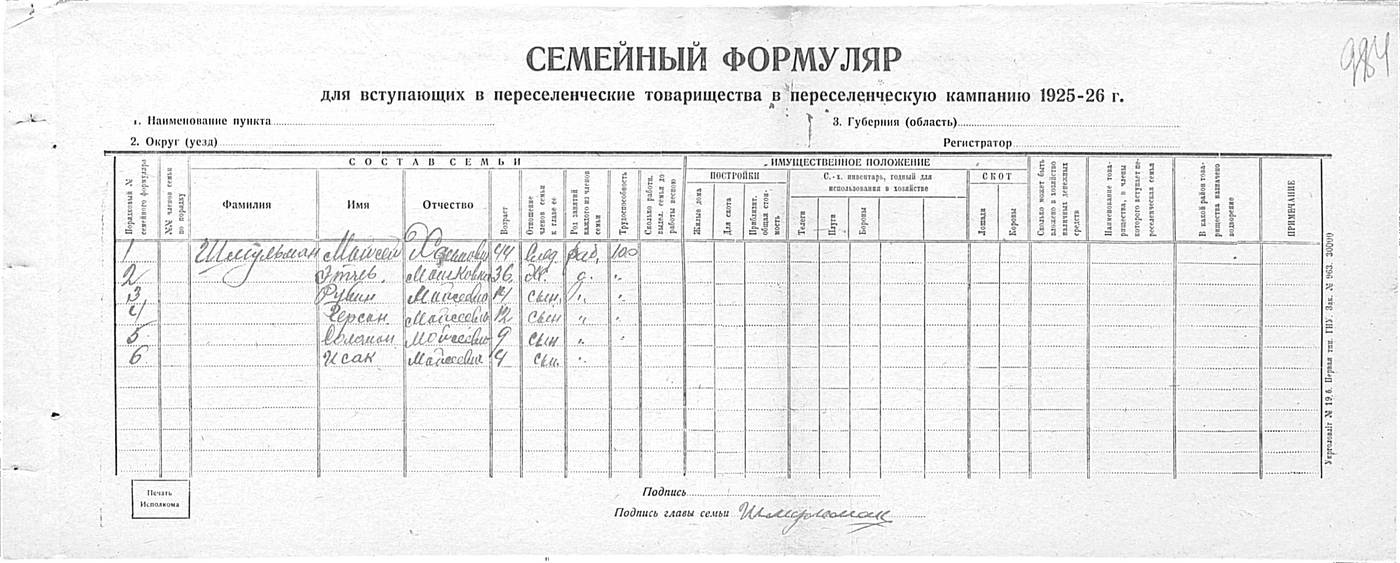 984
СЕМЕЙНЫЙ ФОРМУЛЯР
для вступающих в переселенческие товарищества в переселенческую кампанию 1925-26 г.
1. Наименование пункта
3. Губерния (область)
2. Округ (уезд)
Регистратор
Порядковый № семейного формуляра
№№ членов семьи по порядку
СОСТАВ СЕМЬИ
Фамилия
Имя
Отчество
Возраст
Отношение членов семьи к главе ее
Род занятий каждого из членов семьи
Трудоспособность
Сколько работн. выдел. семья до работы весною
ИМУЩЕСТВЕННОЕ ПОЛОЖЕНИЕ
ПОСТРОЙКИ
Жилых дома
Для скота
Приблизит. общая стоимость
С.-х. инвентарь, годный для использования в хозяйстве
Телеги
Плуги
Бороны
СКОТ
Лошади
Коровы
Сколько может быть вложено в хозяйство наличных денежных средств
Наименование товарищества, в члены которого вступает переселенческая семья
В какой район товарищества назначено водворение
ПРИМЕЧАНИЕ
1 Шмульман Мойсей 44 раб. 100
2 Мошковна 36 "
3 Рувин Мойсеевич 14 сын " "
4 Герсон Мойсеевич 12 сын " "
5 Соломон Мойсеевич 9 сын "
6 Исак Мойсеевич 4 сын "
Печать Исполкома
Подпись
Подпись главы семьи Шмульман
Укрголовліт № 19,6. Первая тип. ГИУ. Зак. № 963. 30000